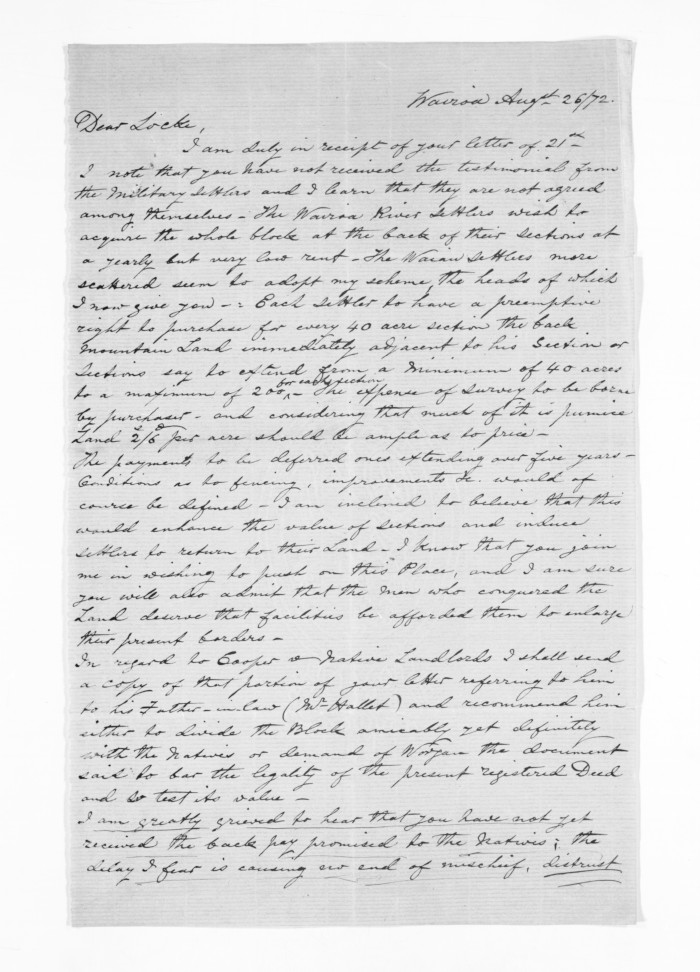 Wairoa Augst 26/72.
Dear Locke,
I am duly in receipt of your letter of 21st
I note that you have not received the testimonial from
the Military Settlers and I learn that they are not agreed
among themselves - The Wairoa River Settlers wish to
acquire the whole block at the back of their sections at
a yearly but very low rent - The Waiau Settlers more
scattered seem to adopt my scheme, the heads of which
I now give you - : Each settler to have a preemptive
right to purchase for every 40 acre section the back
Mountain Land immediately adjacent to his Section or
Sections say to extend from a minimum of 40 acres
for each section
to a maximum of 200 ^ - The expense of survey to be borne
by purchaser - and considering that much of it is pumice
Land 2s/6d per acre should be ample as to price -
The payments to be deferred ones extending over five years -
Conditions as to fencing, improvements &c. would of
course be defined - I am inclined to believe that this
would enhance the value of sections and induce
settlers to return to their Land - I know that you join
me in wishing to push on this Place, and I am sure
you will also admit that the men who conquered the
Land deserve that facilities be afforded them to enlarge
their present borders -
In regard to Cooper v Native Landlords I shall send
a copy of that portion of your letter referring to him
to his Father-in-law (Mr Hallet) and recommend him
either to divide the Block amicably yet definitely
with the Natives or demand of Worgan the document
said to bar the legality of the present registered Deed
and so test its value -
I am greatly grieved to hear that you have not yet
received the back pay promised to the Natives; the
delay I fear is causing no end of mischief, distrust